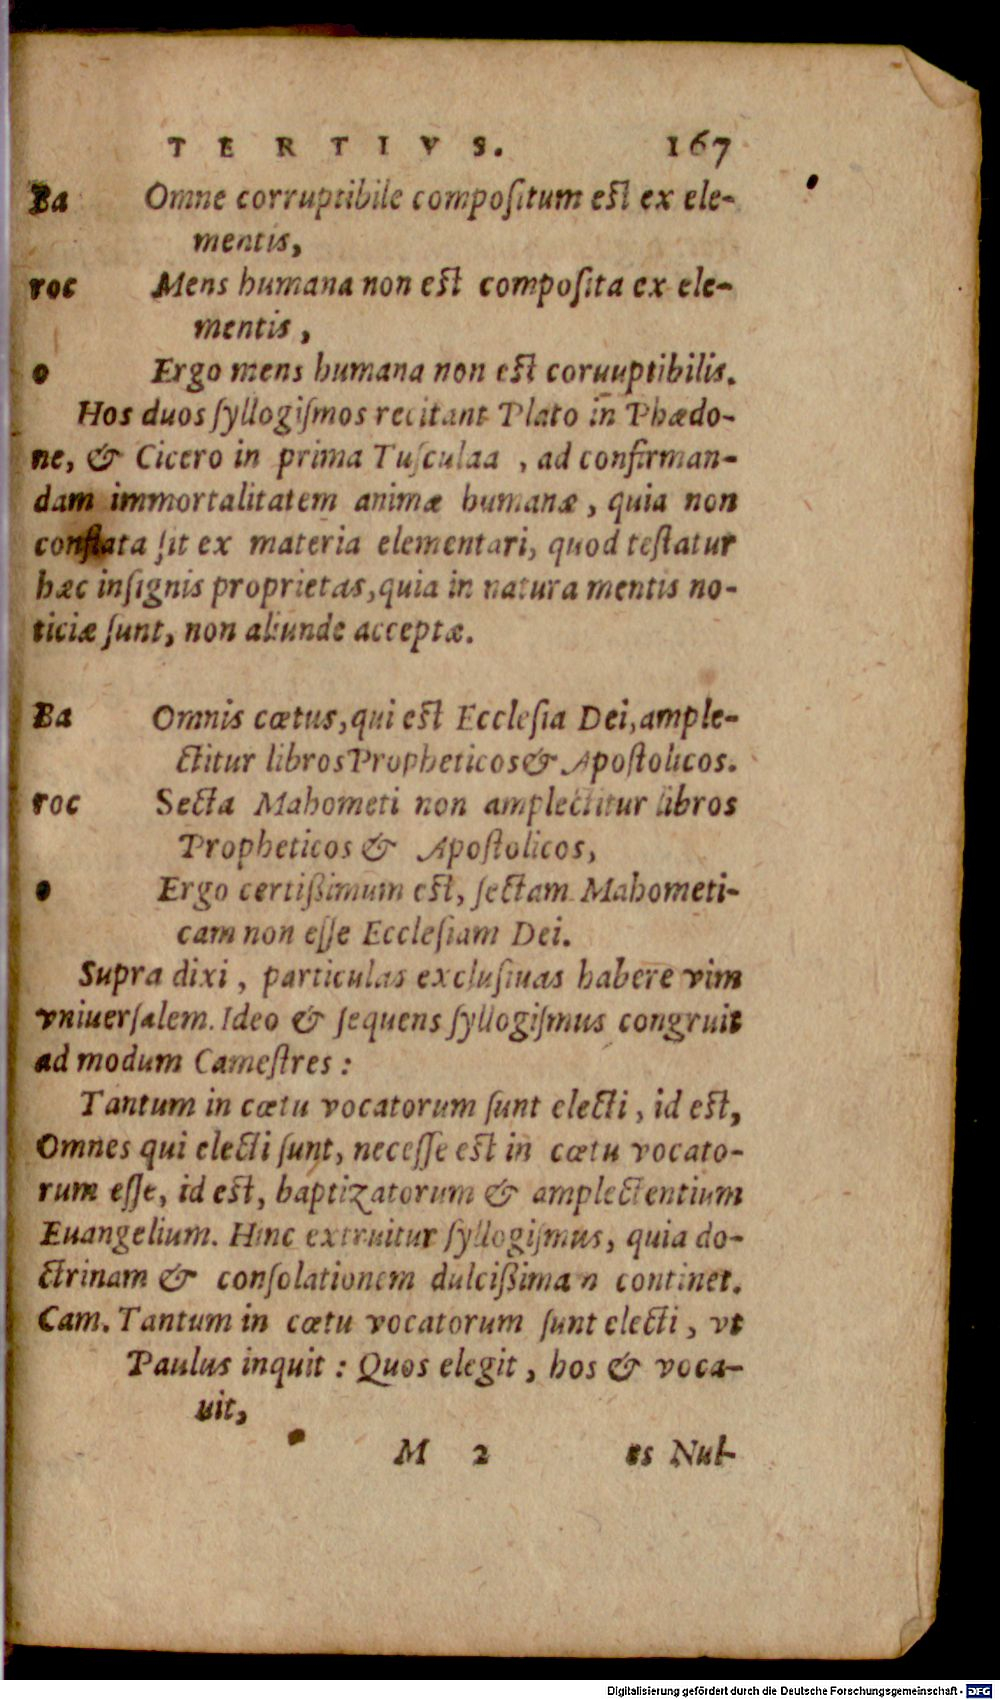 TERTIVS. 167
Ba Omne corruptibile compoſitum eſt ex ele-
mentis,
roc Mens humana non eſt compoſita ex ele-
mentis,
o Ergo mens humana non eſt coruuptibilis.
Hos duos ſyllogiſmos recitant Plato in Phædo-
ne, & Cicero in prima Tuſculaa , ad confirman-
dam immortalitatem animæ humanæ, quia non
conflata ſit ex materia elementari, quod teſtatur
hæc inſignis proprietas, quia in natura mentis no-
ticiæ ſunt, non aliunde acceptæ.
Ba Omnis cœtus, qui eſt Eccleſia Dei, ample-
ctitur libros Propheticos & Apoſtolicos.
roc Secta Mahometi non amplectitur libros
Propheticos & Apoſtolicos,
o Ergo certißimum eſt, ſectam Mahometi-
cam non eſſe Eccleſiam Dei.
Supra dixi, particulas excluſiuas habere vim
vniuerſalem. Ideo & ſequens ſyllogiſmus congruit
ad modum Cameſtres:
Tantum in cœtu vocatorum ſunt electi, id eſt,
Omnes qui electi ſunt, neceſſe eſt in cœtu vocato-
rum eſſe, id eſt, baptizatorum & amplectentium
Euangelium. Hinc extruitur ſyllogiſmus, quia do-
ctrinam & conſolationem dulcißiman continet.
Cam. Tantum in cœtu vocatorum ſunt electi, vt
Paulus inquit: Quos elegit, hos & voca-
uit,
M 2 es Nul-
Digitalisierung gefördert durch die Deutsche Forschungsgemeinschaft - DFG